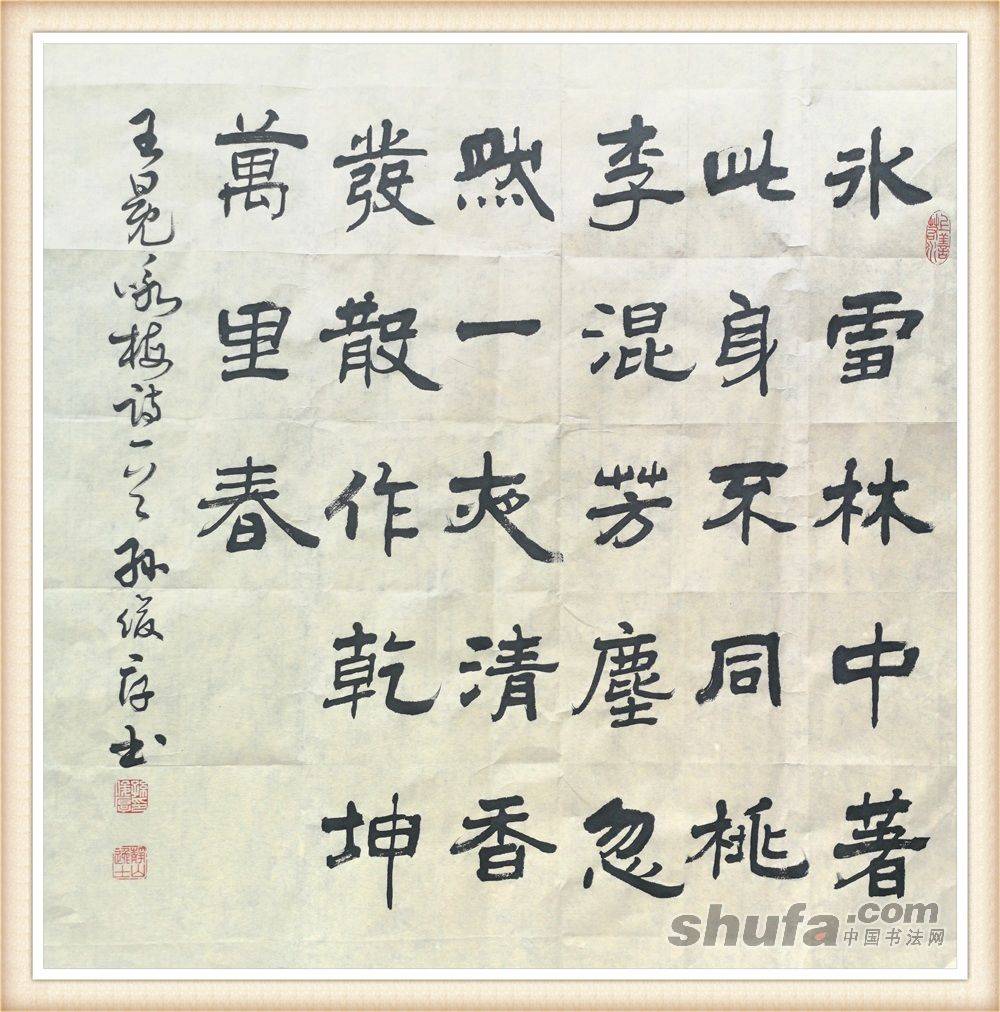 氷雪林中著
此身不同桃
李混芳塵忽
然一夜清香
發散作乾坤
萬里春
王冕咏梅诗一首 孙俊 书
上善若水
shufa.com
中国书法网